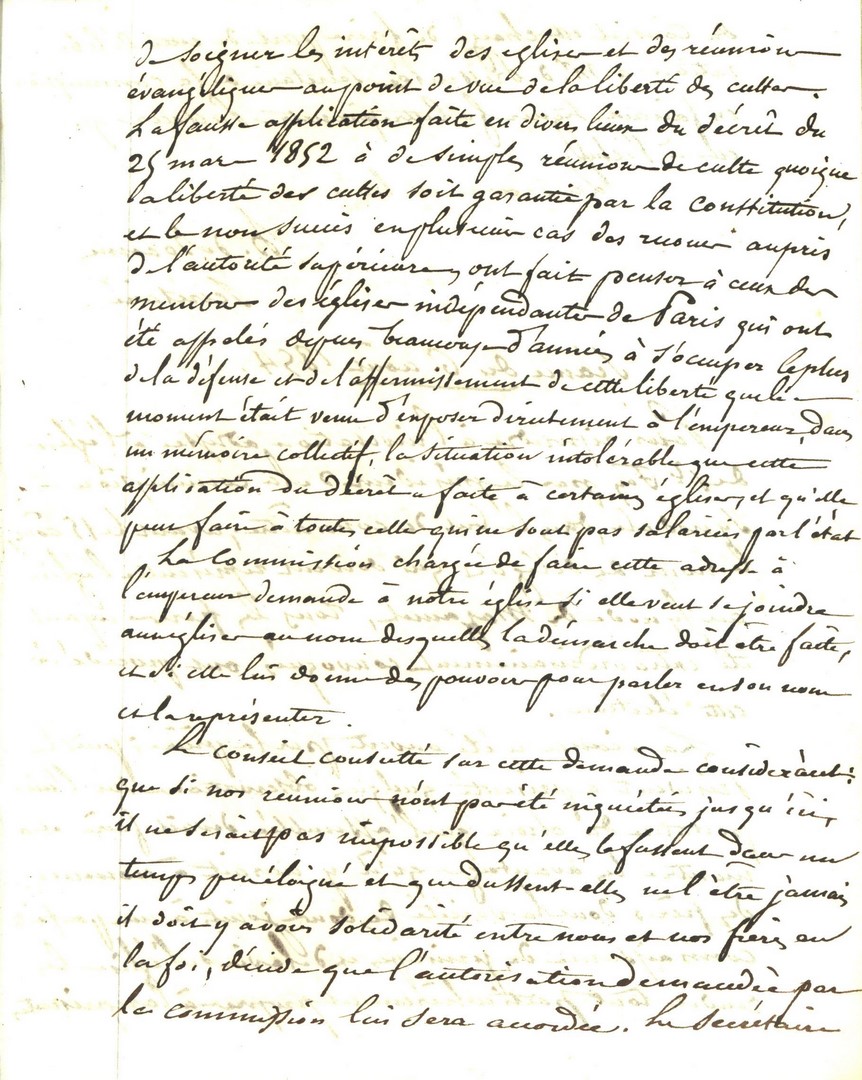 de soigner les intérêts des eglises et des réunions
évangéliques au point de vue de la liberté des cultes.
La fausse application faite en divers lieux du décrêt du
25 mars 1852 à de simples réunions de culte quoique
la liberté des cultes soit garantie par la constitution,
et le non succès en plusieurs cas des recours auprès
de l'autorité supérieure, ont fait penser à ceux des
membres des églises indépendantes de Paris qui ont
été appelés depuis beaucoup d'années à s'occuper le plus
de la défense et de l'affermissement de cette liberté que le
moment était venu d'exposer directement à l'empereur, dans
un mémoire collectif, la situation intolérable que cette
application du décrêt a faite à certaines églises, et qu'elle
peut faire à toutes celles qui ne sont pas salariées par l'état
La Commission chargée de faire cette adresse à
l'empereur demande à notre église si elle veut se joindre
aux églises au nom desquelles la démarche doit être faite,
et si elle lui donne des pouvoirs pour parler en son nom
et la représenter.
Le conseil consulté sur cette demande considérant:
que si nos réunions n'ont pas été inquiétées jusqu'ici,
il ne serait pas impossible qu'elles le fussent dans un
temps peu éloigné et que dussent-elles ne l'être jamais
il doit y avoir solidarité entre nous et nos frères en
la foi, décide que l'autorisation demandée par
la commission lui sera accordée. Le secrétaire